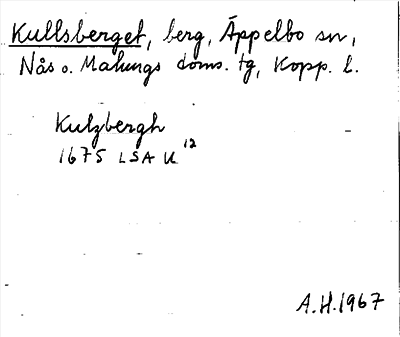 Kullsberget, berg, Äppelbo sn,
Nås o. Malungs doms. tg, Kopp. l.
Kulzbergh
1675 LSA U 12
A.H. 1967